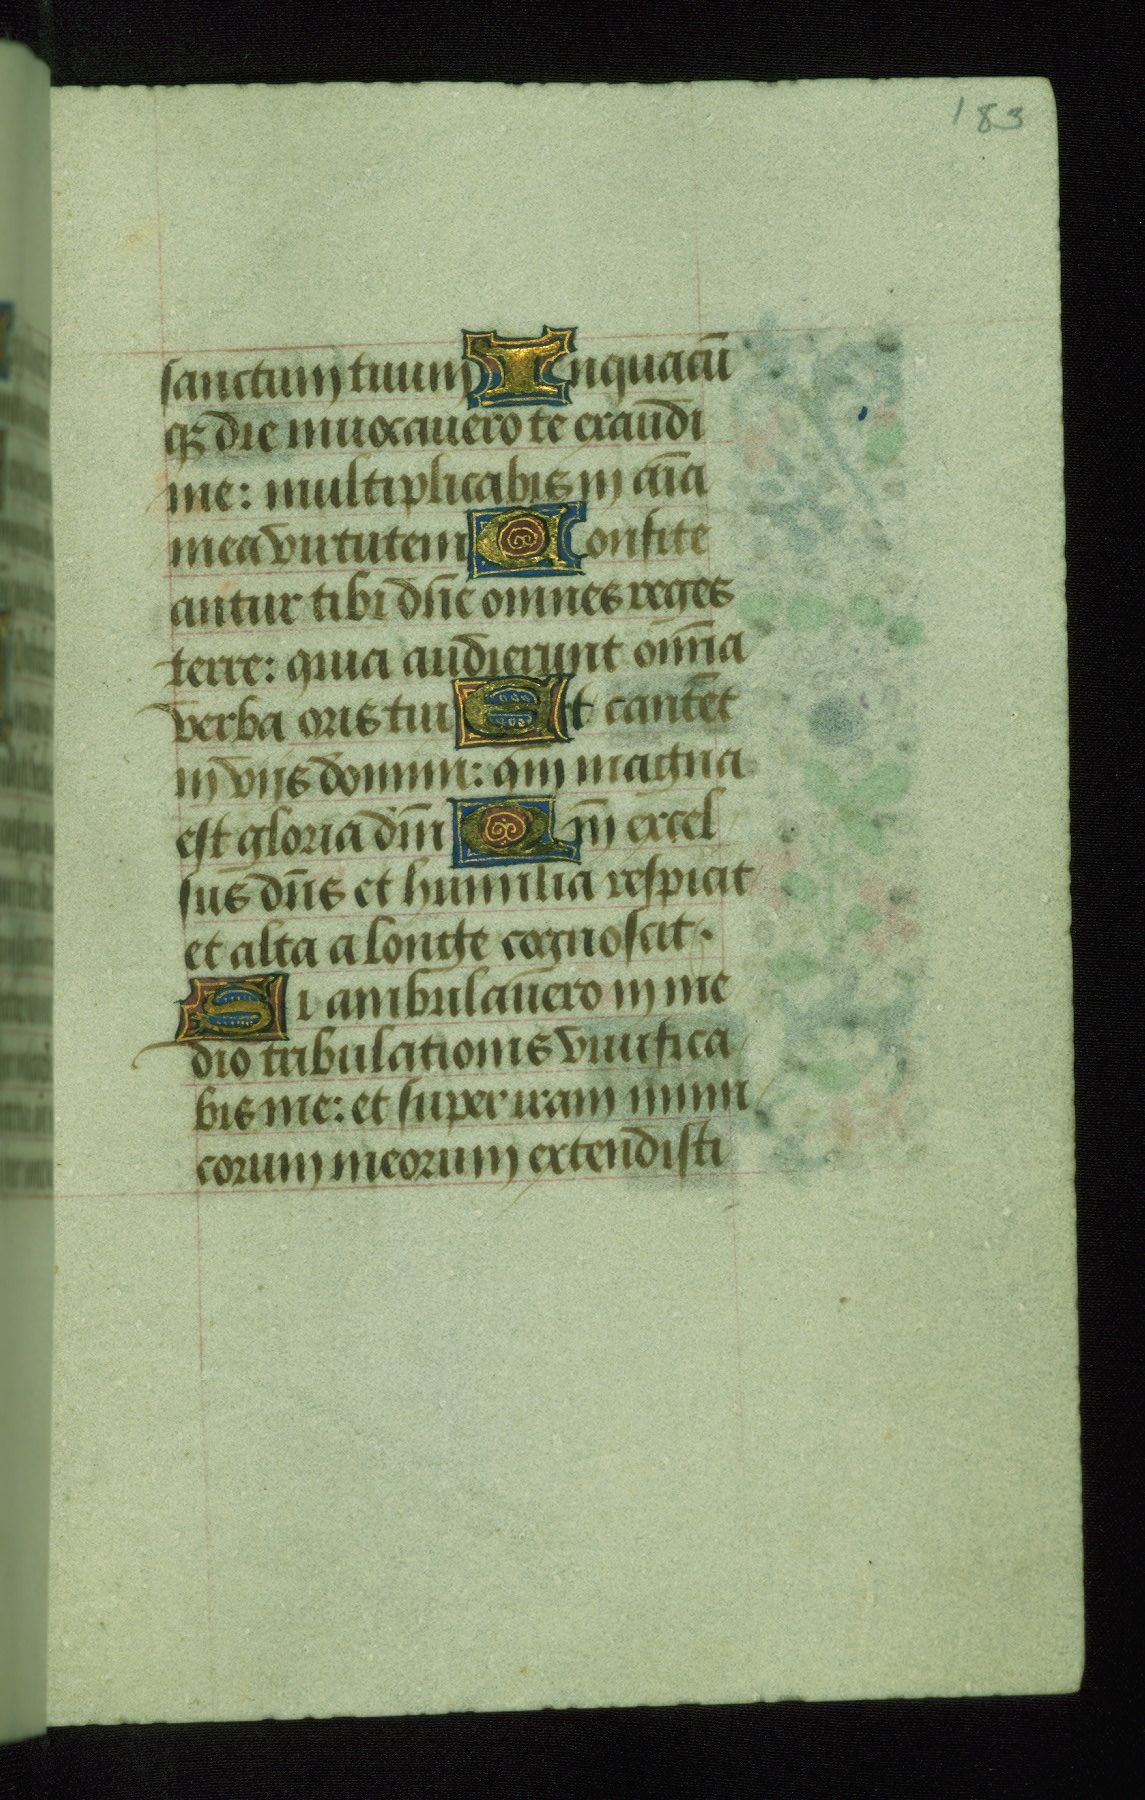 183
sanctum tuum In quacū
qꝫ die inuocauero te exaudi
me: multiplicabis in aīa
mea virtutem Confite
antur tibi dn̄e omnes reges
terre: quia audierunt om̄ia
verba oris tui Et cantēt
in viis domini: qm̄ magna
est gloria dn̄i Qm̄ excel
sus dn̄s et humilia respicit
et alta a longe cognoscit.
Si ambulauero in me
dio tribulationis viuifica
bis me: et super iram inimi
corum meorum extendisti